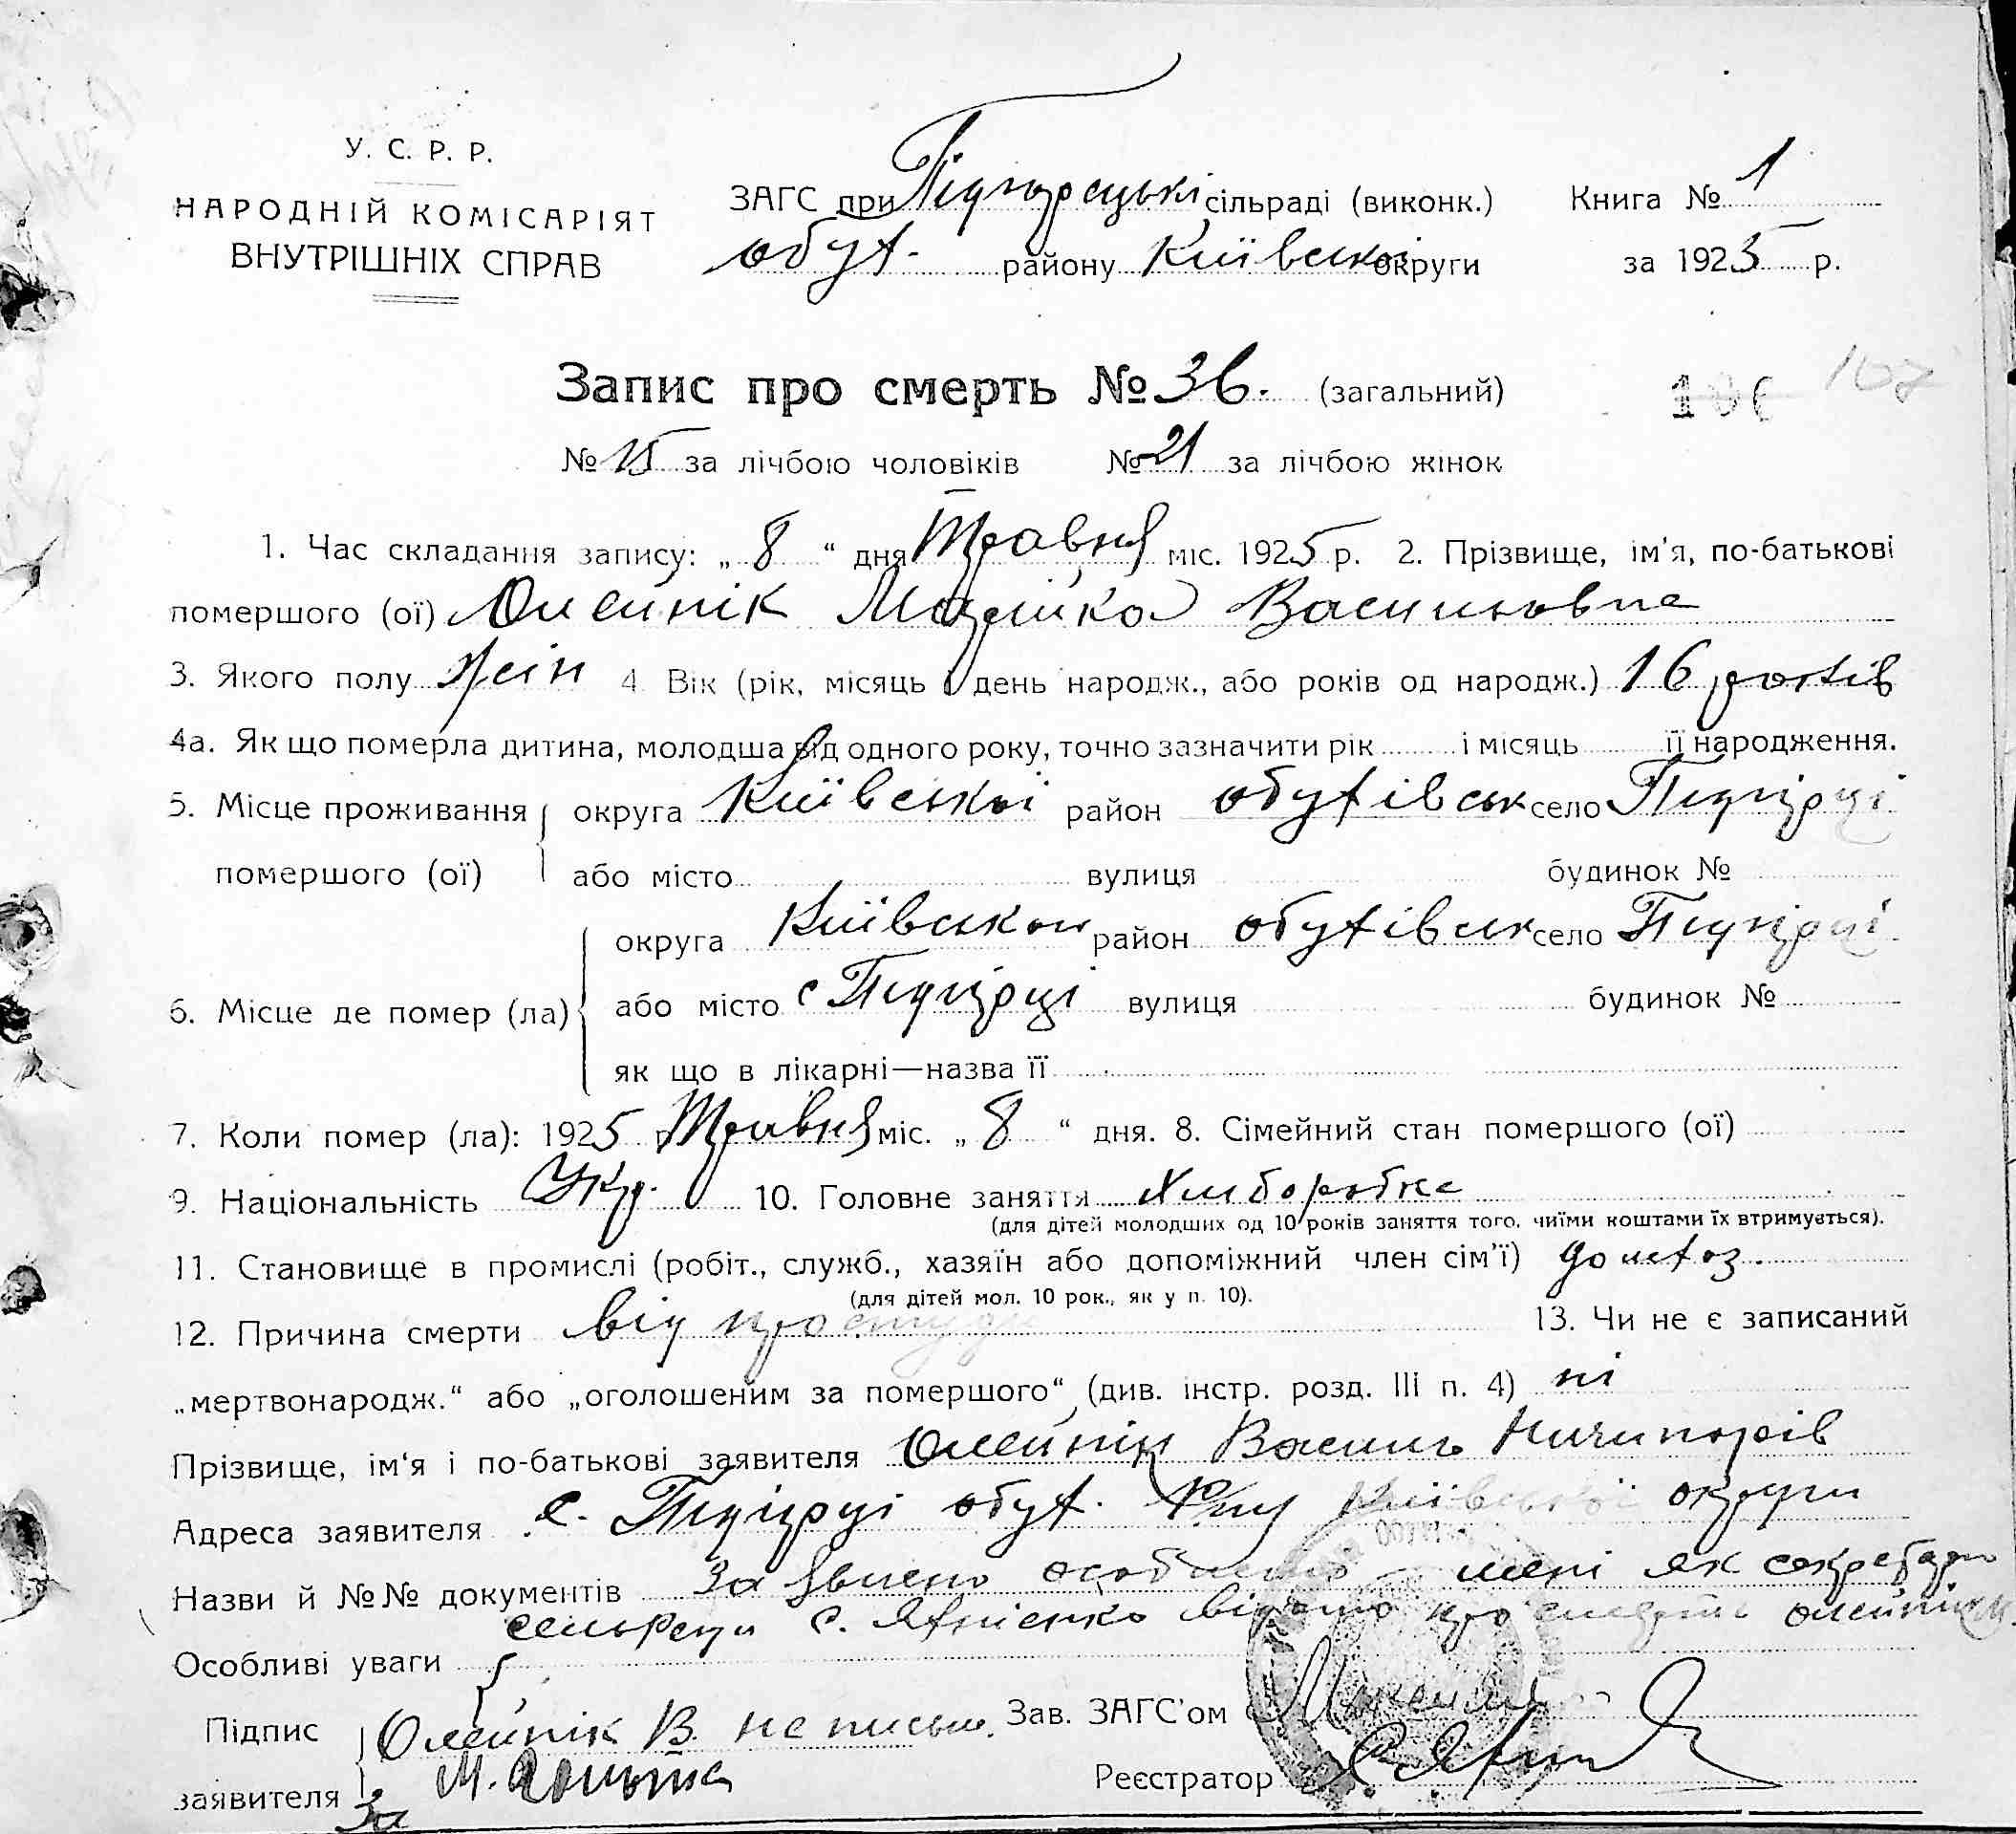 У. С. Р. Р.
НАРОДНІЙ КОМІСАРІЯТ
ВНУТРІШНІХ СПРАВ
ЗАГС при Підгорецькі сільраді (виконк.)
обух. району Київської округи
Книга № 1
за 1925 р.
Запис про смерть № 36. (загальний)
107
№ 15 за лічбою чоловіків № 21 за лічбою жінок
1. Час складання запису: „ 8 “ дня Травня міс. 1925 р. 2. Прізвище, ім'я, по-батькові
помершого (ої) Олейнік Васильовна
3. Якого полу жін 4 Вік (рік, місяць і день народж., або років од народж.) 16 років
4а. Як що померла дитина, молодша від одного року, точно зазначити рік і місяць її народження.
5. Місце проживання округа Київської район обухівськ село Підгірці
помершого (ої) або місто вулиця будинок №
округа Київської район обухівськ село Підгірці
6. Місце де помер (ла) або місто с Підгірці вулиця будинок №
як що в лікарні—назва її
7. Коли помер (ла): 1925 р Травня міс. „ 8 “ дня. 8. Сімейний стан помершого (ої)
9. Національність Укр. 10. Головне заняття Хлиборобка
(для дітей молодших од 10 років заняття того, чиїми коштами їх втримується).
11. Становище в промислі (робіт., служб., хазяїн або допоміжний член сім'ї)
(для дітей мол. 10 рок., як у п. 10).
12. Причина смерти від простуди 13. Чи не є записаний
„мертвонародж.“ або „оголошеним за помершого“ (див. інстр. розд. III п. 4) ні
Прізвище, ім'я і по-батькові заявителя Олейнік Василь Ничипорів
Адреса заявителя с. Підгірці обух. Р-ну Київської округи
Назви й №№ документів Заявлено особисто мені як секретарю
сельради с. відомо про смерть
Особливі уваги
Підпис Олейнік В. не письм. Зав. ЗАГС'ом
заявителя За М. Реєстратор